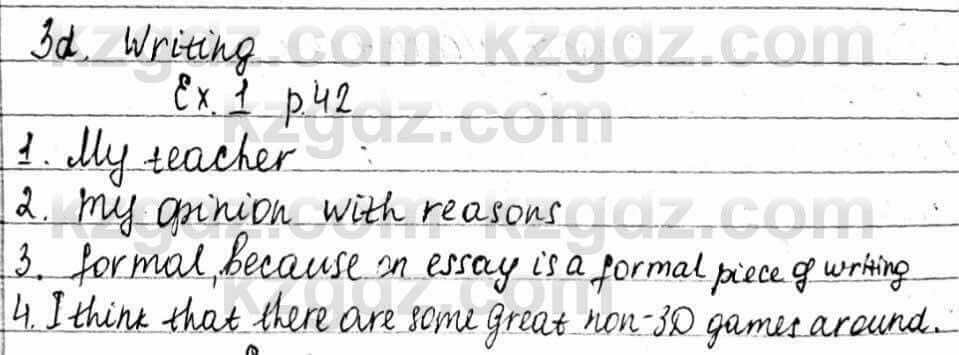 3d. Writing
Ex. 1 p.42
1. My teacher
2. My opinion with reasons
3. formal, because an essay is a formal piece of writing
4. I think that there are some great non-3D games around.
kzgdz.com kzgdz.com
kzgdz.com
kzgdz.com kzgdz.com
kzgdz.com